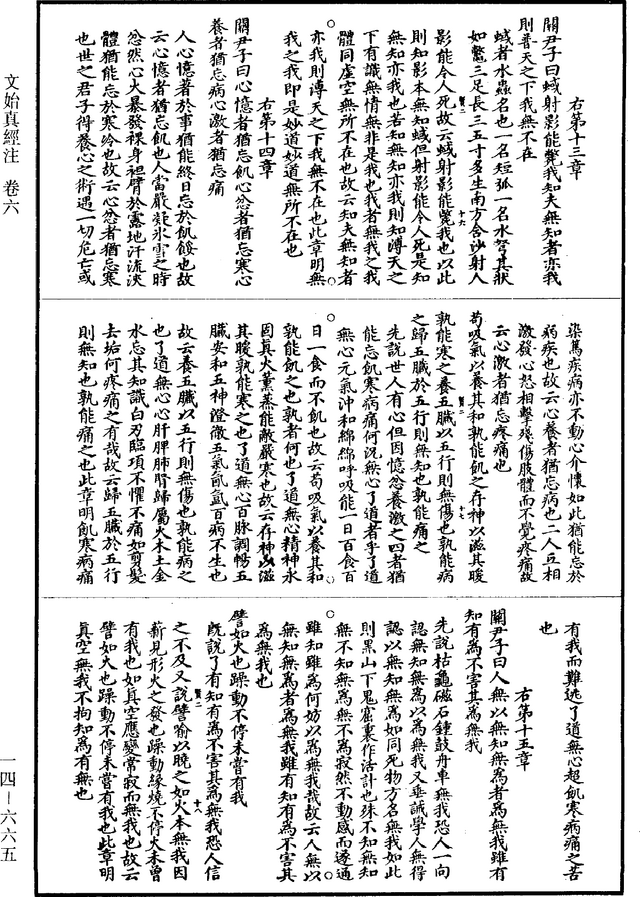 文始真經注 卷六
右第十三章
關尹子曰蜮射影能斃我知夫無知者亦我
則普天之下我無不在
蜮者水蟲名也一名短狐一名水弩其狀
如鱉三足長三五寸多生南方含沙射人
影能令人死故云蜮射影能斃我也以此
則知影本無知蜮但射影能令人死是知
無知亦我也若知無知亦我則知溥天之
下有識無情無非是我也我者無我之我
體同虛空無所不在也故云知夫無知者
亦我則溥天之下我無不在也此章明無
我之我即是妙道妙道無所不在也
右第十四章
關尹子曰心憶者猶忘飢心忿者猶忘寒心
養者猶忘病心激者猶忘痛
人心憶著於事猶能終日忘於飢餒也故
云心憶者猶忘飢也人當嚴凝氷雪之時
忿然心火暴發裸身袒臂於露地汗流浹
體猶能忘於寒冷也故云心忿者猶忘寒
也世之君子得養心之術遇一切危亡或
染篤疾病亦不動心介懷如此猶能忘於
病疾也故云心養者猶忘病也二人互相
激發心怒相擊殘傷肢體而不覺疼痛故
云心激者猶忘疼痛也
苟吸氣以養其和孰能飢之存神以滋其暖
孰能寒之養五臟以五行則無傷也孰能病
之歸五臟於五行則無知也孰能痛之
先說世人有心但因憶忿養激之四者猶
能忘飢寒病痛何況無心了道者乎了道
無心元氣沖和綿綿呼吸能一日百食百
日一食而不飢也故云苟吸氣以養其和
孰能飢之也孰者何也了道無心精神永
固真火薰蒸能敵嚴寒也故云存神以滋
其暖孰能寒之也了道無心百脉調暢五
臟安和五神澄徹五氣氤氳百病不生也
故云養五臟以五行則無傷也孰能病之
也了道無心心肝脾肺腎歸屬火木土金
水忘其知識白刃臨項不懼不痛如剪髮
去垢何疼痛之有哉故云歸五臟於五行
則無知也孰能痛之也此章明飢寒病痛
有我而難逃了道無心超飢寒病痛之苦
也
右第十五章
關尹子曰人無以無知無為者為無我雖有
知有為不害其為無我
先說枯龜磁石鍾鼓舟車無我恐人一向
認無知無為以為無我又垂誡學人無得
認以無知無為如同死物方名無我如此
則黑山下鬼窟裏作活計也殊不知無知
無不知無為無不為寂然不動感而遂通
雖知雖為何妨以為無我哉故云人無以
無知無為者為無我雖有知有為不害其
為無我也
譬如火也躁動不停未嘗有我
既說了有知有為不害其為無我恐人信
之不及又說譬喻以曉之如火本無我因
薪見形火之發也躁動緣燒不停火未曾
有我也如真空應變常寂而無我也故云
譬如火也躁動不停未嘗有我也此章明
真空無我不拘知為有無也
一四－六六五